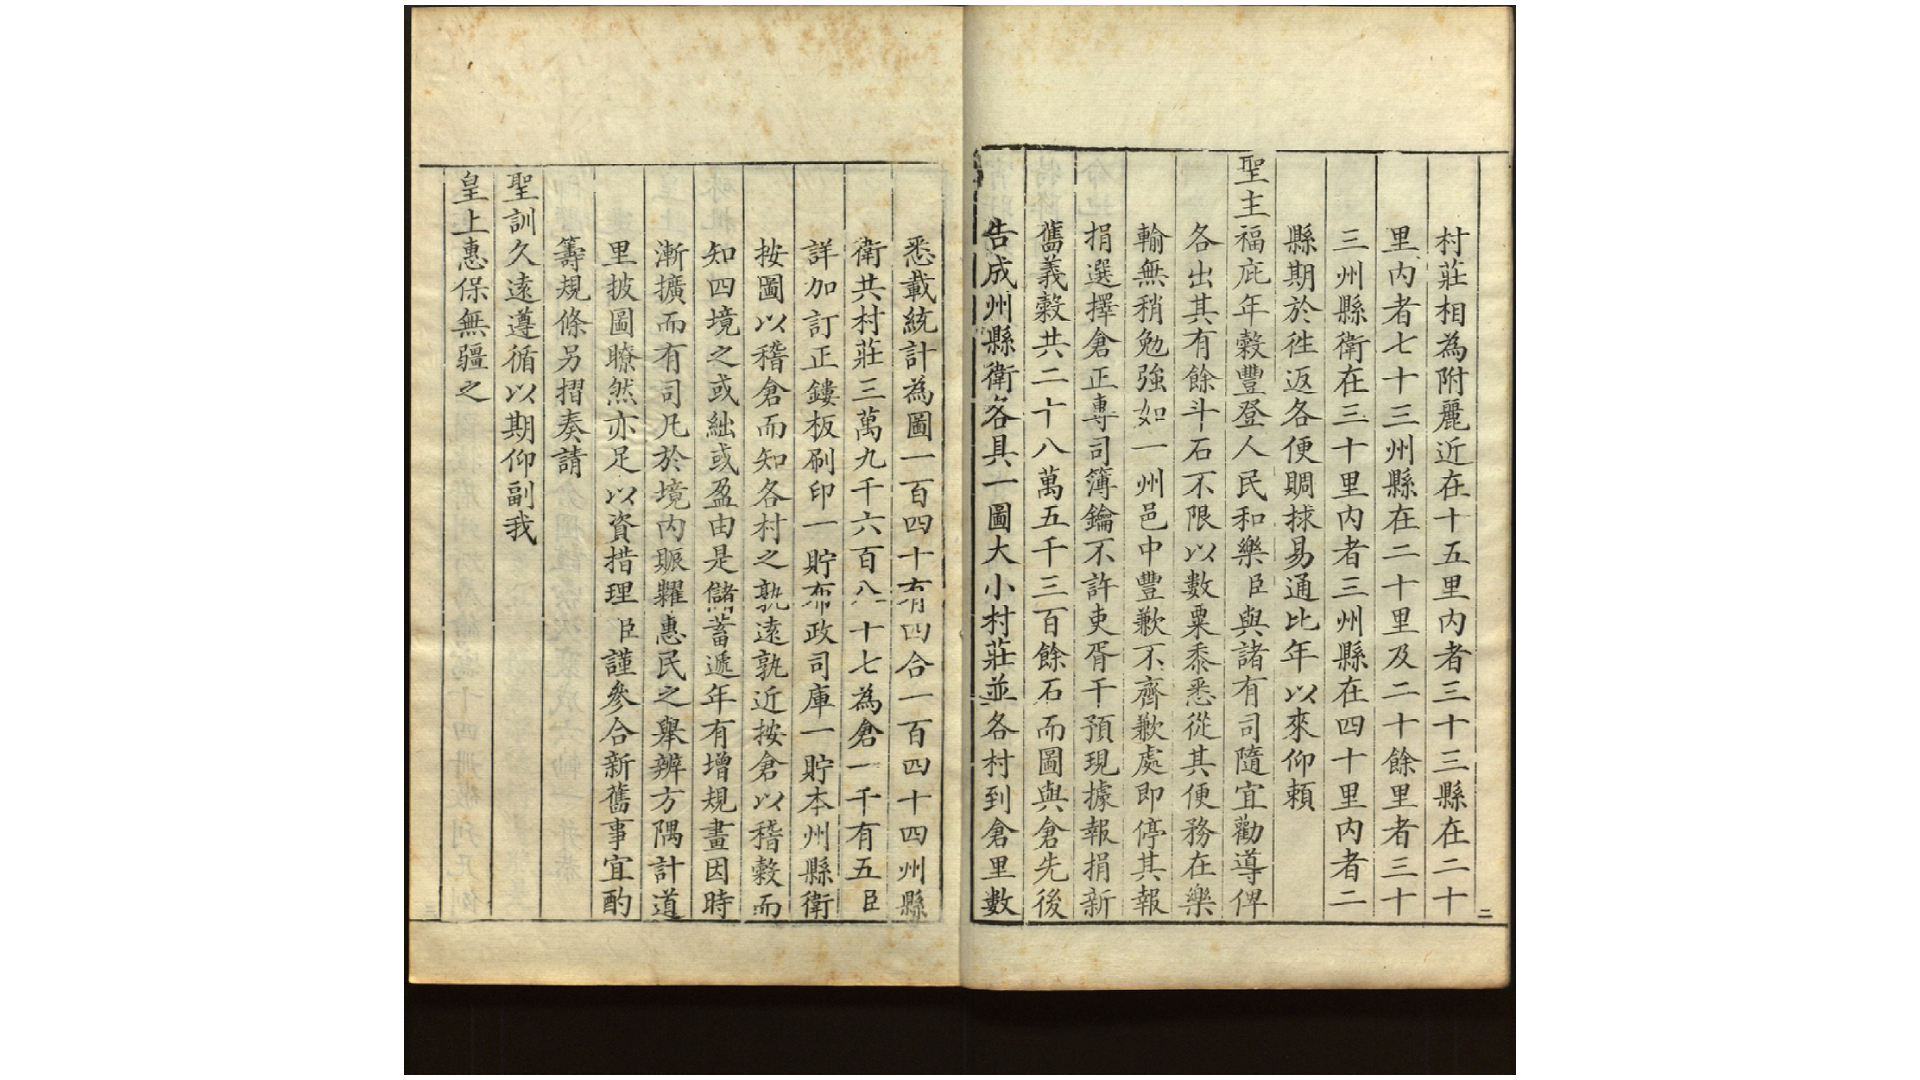 村莊相為附麗近在十五里內者三十三縣在二十
里內者七十三州縣在二十里及二十餘里者三十
三州縣衛在三十里內者三州縣在四十里內者二
縣期於徃返各便賙捄易通比年以來仰賴
聖主福庇年穀豐登人民和樂臣與諸有司隨宜勸導俾
各出其有餘斗石不限以數粟黍悉從其便務在樂
輸無稍勉強如一州邑中豐歉不齊歉處即停其報
捐選擇倉正專司簿鑰不許吏胥干預現據報捐新
舊義穀共二十八萬五千三百餘石而圖與倉先後
告成州縣衛各具一圖大小村莊並各村到倉里數
二
悉載統計為圖一百四十有四合一百四十四州縣
衛共村莊三萬九千六百八十七為倉一千有五臣
詳加訂正鏤板刷印一貯布政司庫一貯本州縣衛
按圖以稽倉而知各村之孰遠孰近按倉以稽穀而
知四境之或絀或盈由是儲蓄遞年有增規畫因時
漸擴而有司凡於境內賑糶惠民之舉辨方隅計道
里披圖瞭然亦足以資措理臣謹參合新舊事宜酌
籌規條另摺奏請
聖訓久遠遵循以期仰副我
皇上惠保無疆之